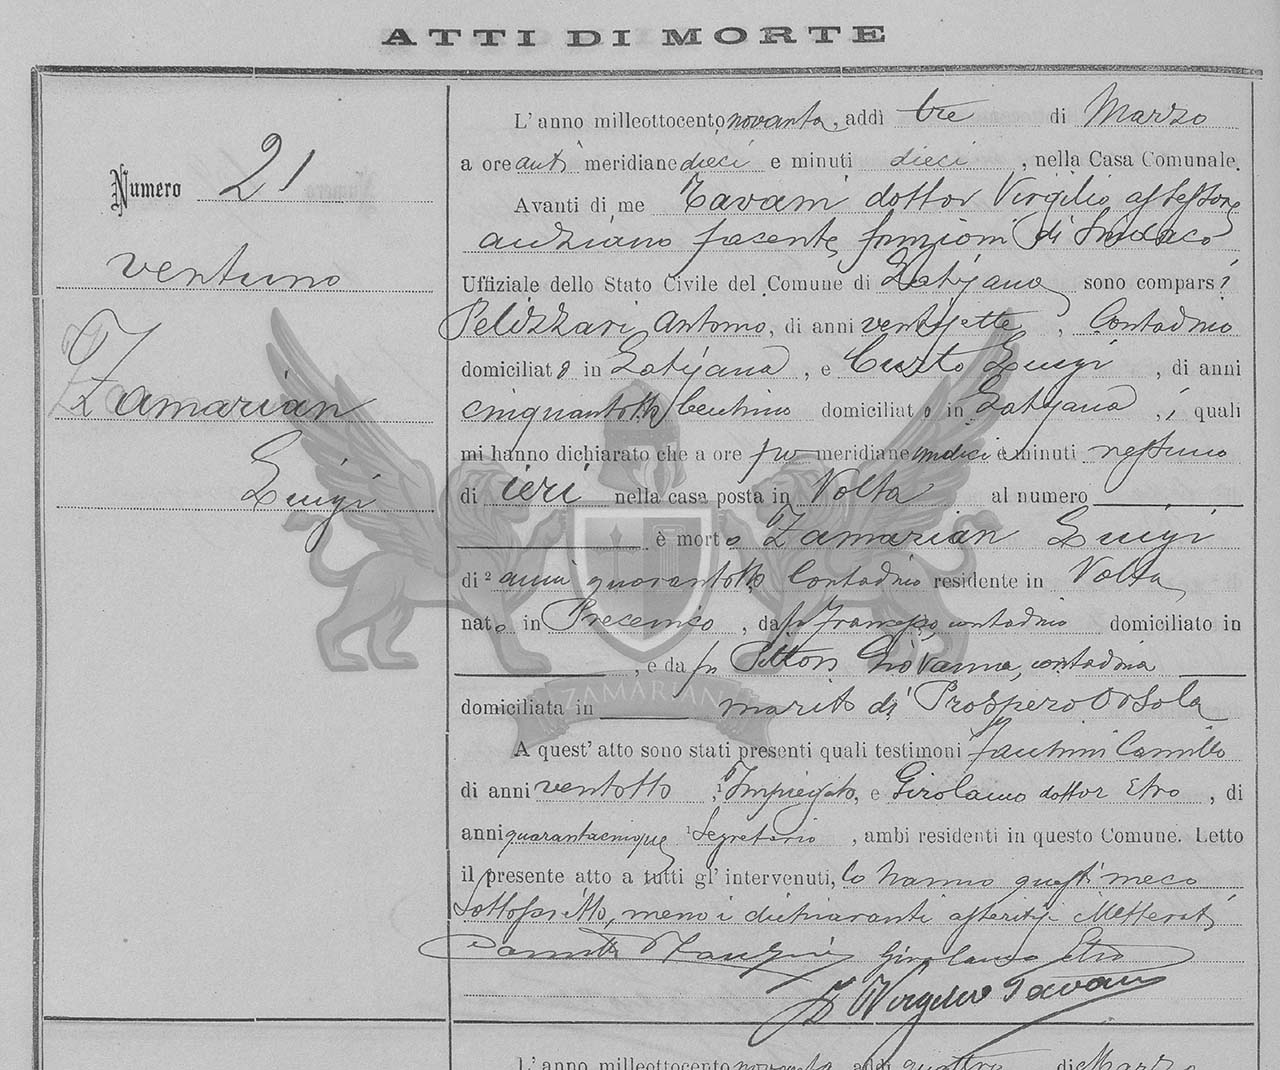 ATTI DI MORTE
Numero 21
ventuno
Zamarian
Luigi
L'anno milleottocento novanta, addì tre di Marzo
a ore anti meridiane dieci e minuti dieci, nella Casa Comunale.
Avanti di me Tavani dottor Virgilio assessore
anziano facente funzioni di Sindaco
Uffiziale dello Stato Civile del Comune di Latisana sono comparsi
Pelizzari Antonio, di anni ventisette, Contadino
domiciliato in Latisana, e Curto Luigi, di anni
cinquantotto Becchino domiciliato in Latisana, i quali
mi hanno dichiarato che a ore po meridiane undici e minuti nessuno
di ieri nella casa posta in Volta al numero
è morto Zamarian Luigi
di ² anni quarantotto Contadino residente in Volta
nato in Precenico, da fu Francesco, contadino domiciliato in
, e da fu Pittoni Giovanna, contadina
domiciliata in marito di Prospero Orsola
A quest'atto sono stati presenti quali testimoni Fantini Camillo
di anni ventotto, ¹ Impiegato, e Girolamo dottor Etro, di
anni quarantacinque ¹ Segretario, ambi residenti in questo Comune. Letto
il presente atto a tutti gl'intervenuti, lo hanno questi meco
sottoscritto, meno i dichiaranti asseritisi illetterati
Camillo Girolamo Etro
Virgilio Tavani
ZAMARIAN
L'anno milleottocento novanta addì quattro di Marzo